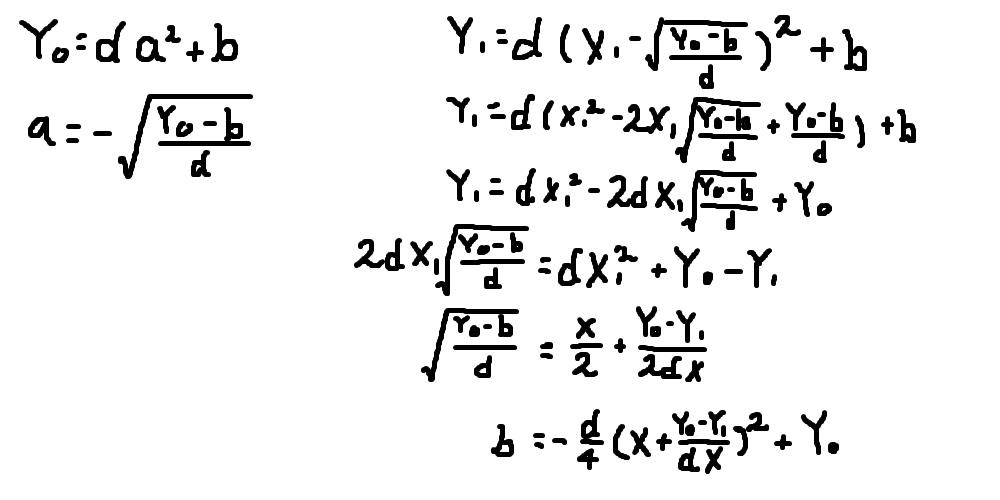 Y₀=da²+b
a=-√((Y₀-b)/d)
Y₁=d(X₁-√((Y₀-b)/d))²+b
Y₁=d(X₁²-2X₁√((Y₀-b)/d)+(Y₀-b)/d)+b
Y₁=dX₁²-2dX₁√((Y₀-b)/d)+Y₀
2dX₁√((Y₀-b)/d)=dX₁²+Y₀-Y₁
√((Y₀-b)/d)=X/2+(Y₀-Y₁)/(2dX)
b=-d/4(X+(Y₀-Y₁)/(dX))²+Y₀